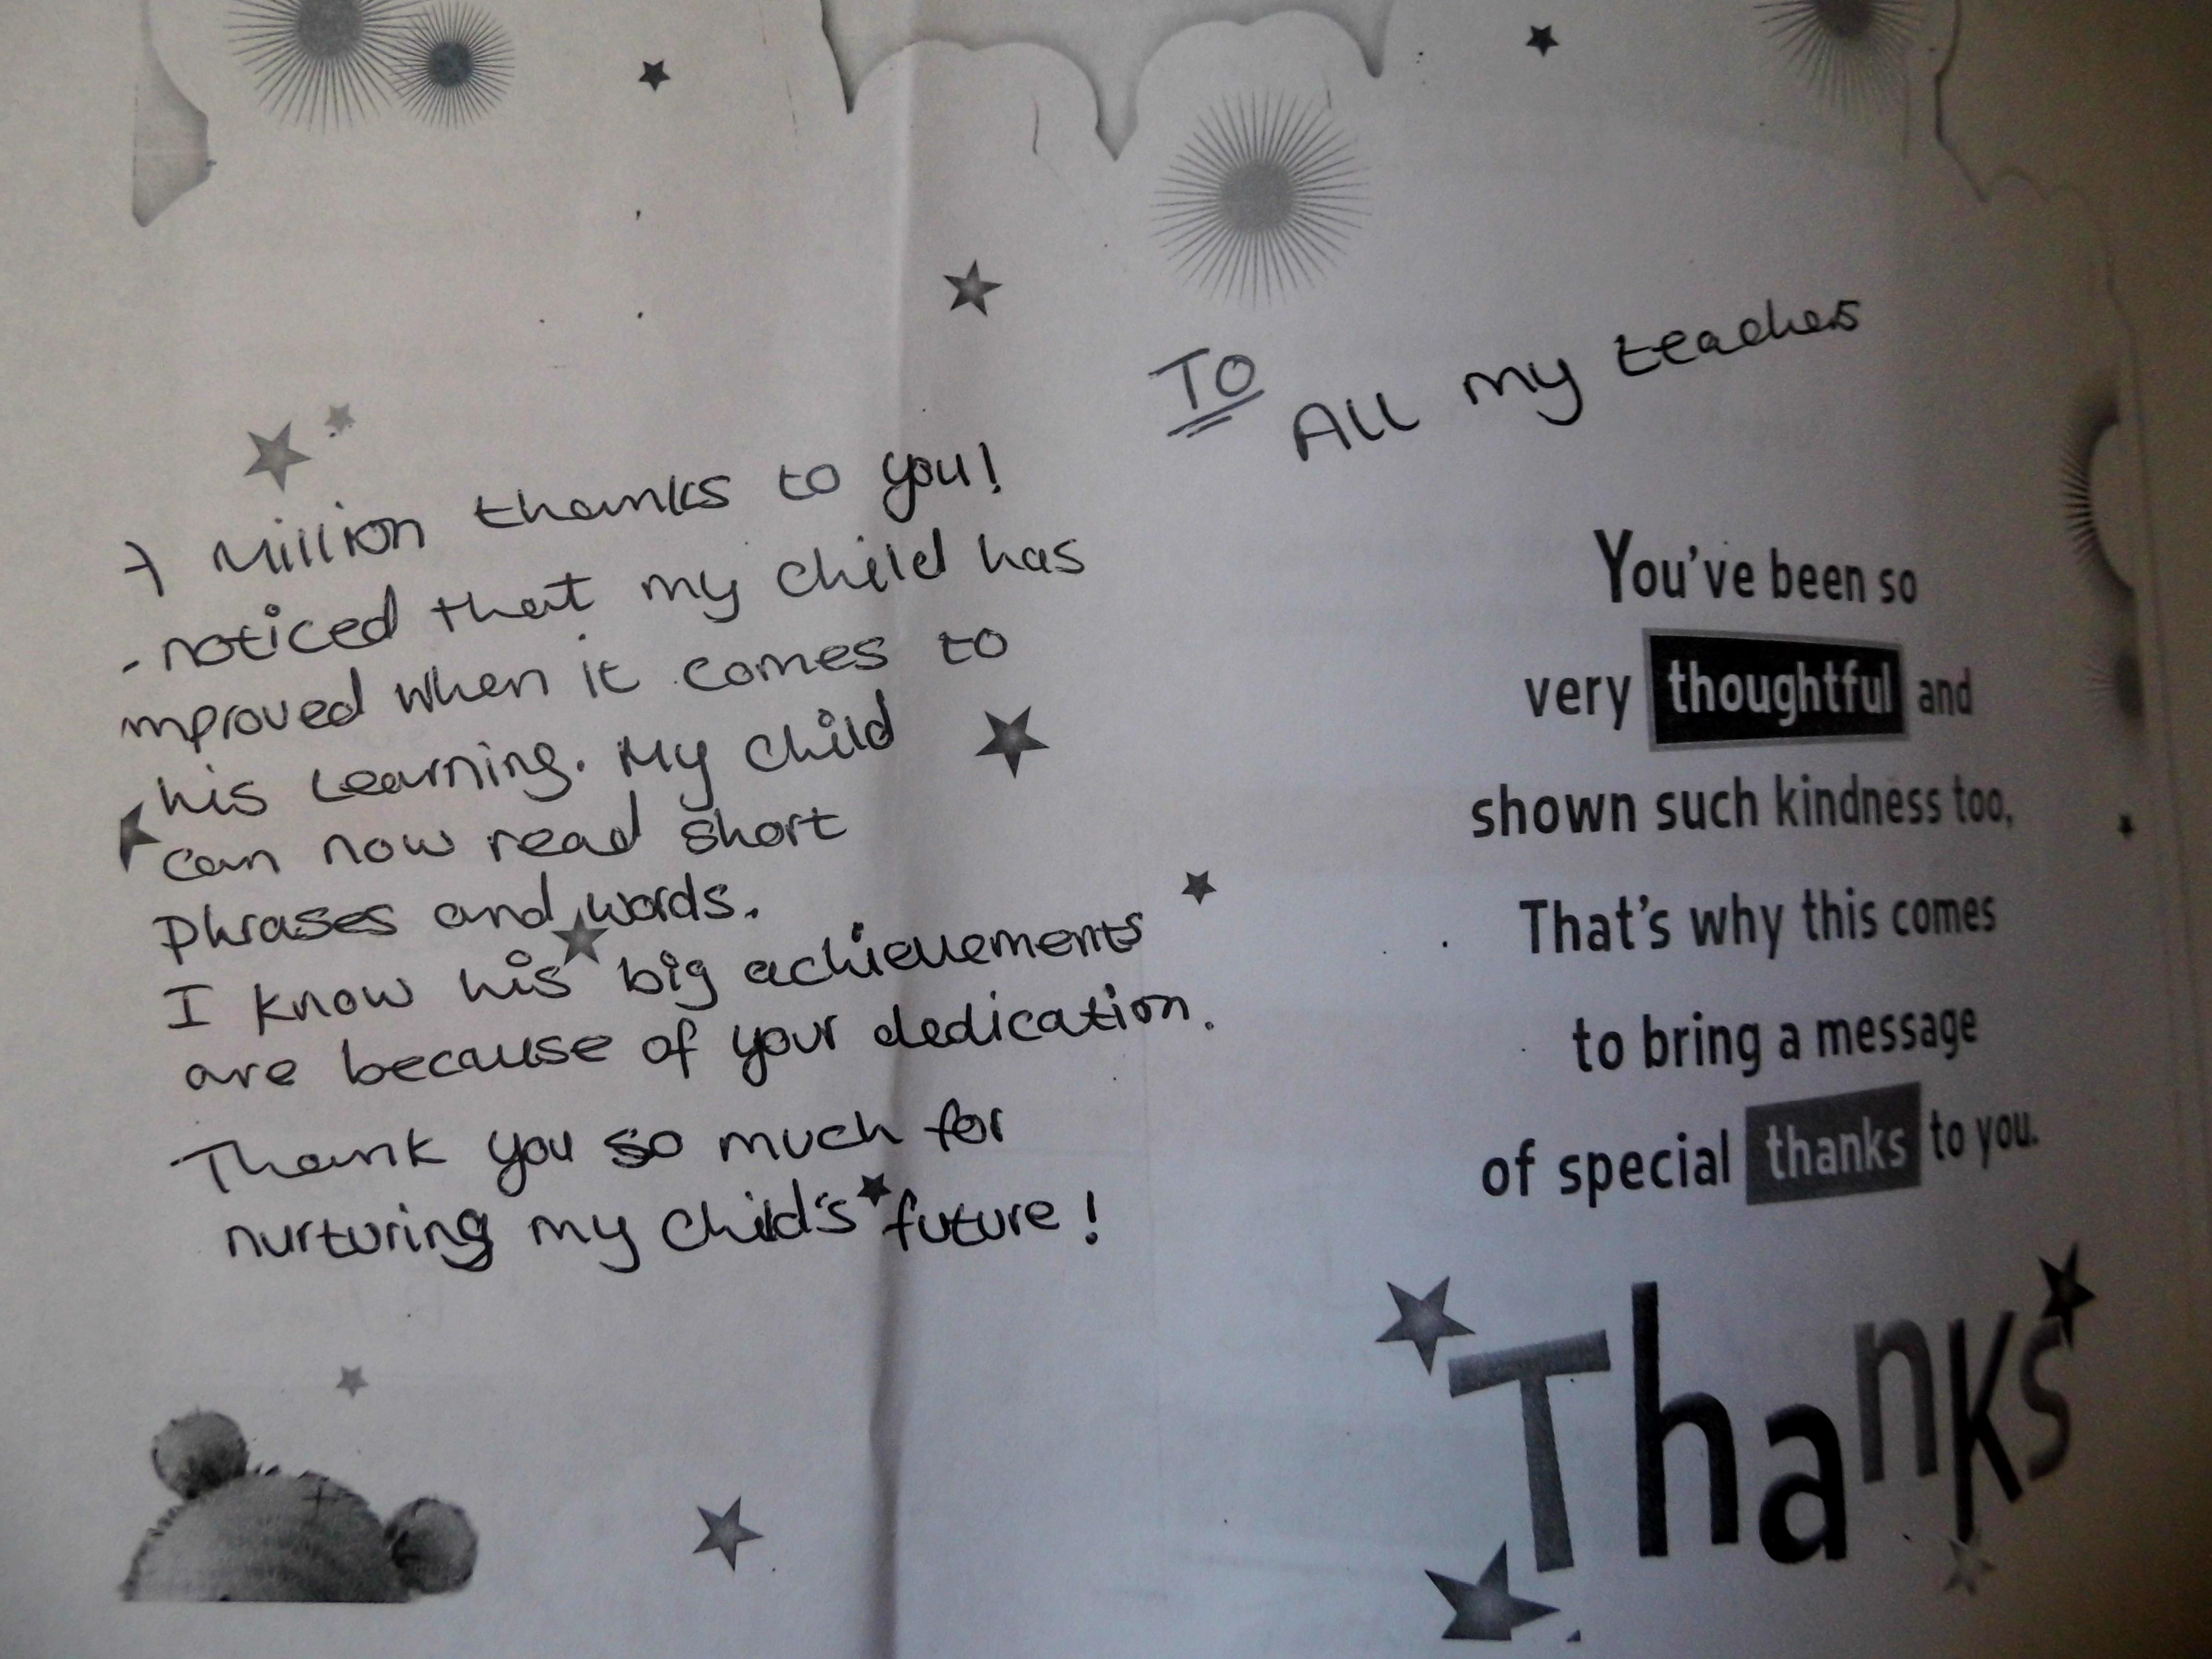 A Million thanks to you!
noticed that my child has
mproved when it comes to
his Learning. My child
can now read short
phrases and words.
I know his big achievements
are because of your dedication.
Thank you so much for
nurturing my child's future!
TO
All my teachers
You've been so
very thoughtful and
shown such kindness too,
That's why this comes
to bring a message
of special thanks to you.
Thanks